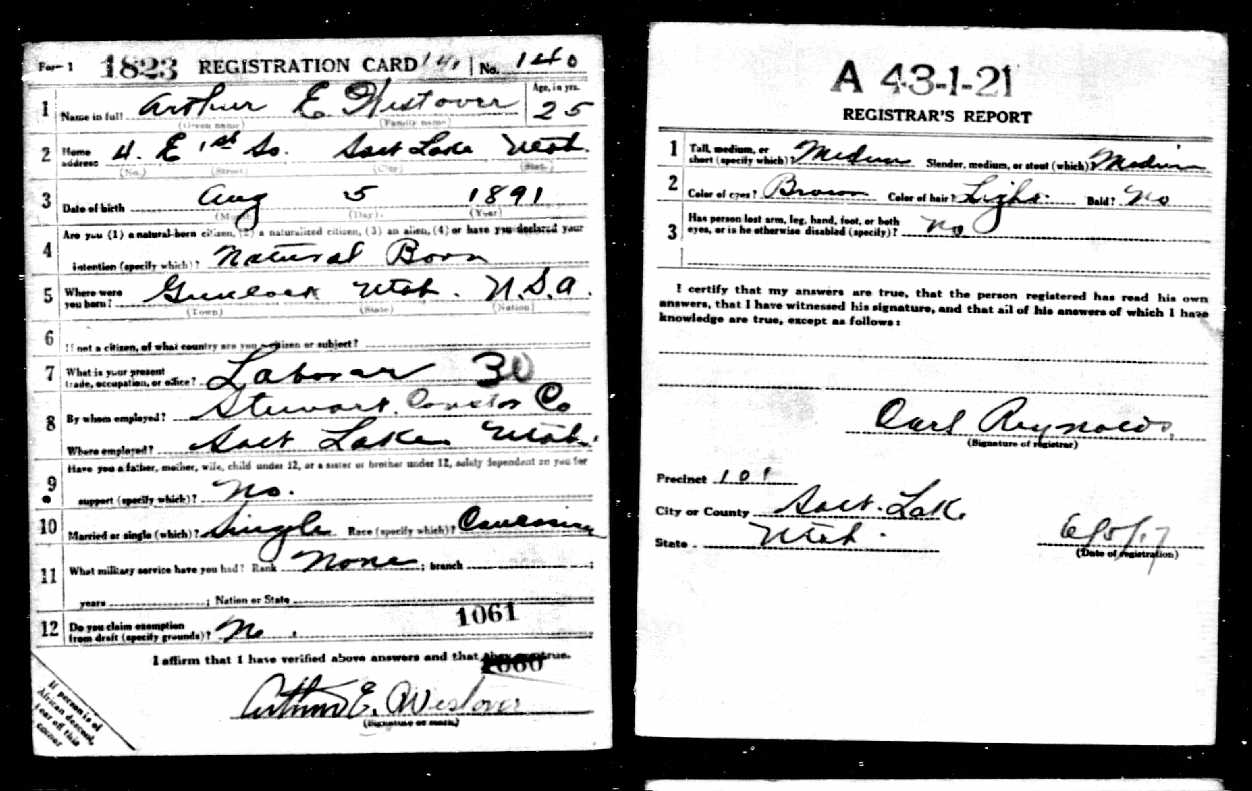 Form 1 1823 REGISTRATION CARD No. 140
1 Name in full Arthur E. Westover Age, in yrs. 25
(Given name) (Family name)
2 Home address 4. E 1st So. Salt Lake Utah.
(No.) (Street) (City) (State)
3 Date of birth Aug 5 1891
(Month) (Day) (Year)
4 Are you (1) a natural-born citizen, (2) a naturalized citizen, (3) an alien, (4) or have you declared your
intention (specify which)? Natural Born
5 Where were you born? Gunlock Utah. U.S.A.
(Town) (State) (Nation)
6 If not a citizen, of what country are you a citizen or subject?
7 What is your present trade, occupation, or office? Laborer 30
8 By whom employed? Stewart Constr Co
Where employed? Salt Lake Utah.
9 Have you a father, mother, wife, child under 12, or a sister or brother under 12, solely dependent on you for
support (specify which)? No.
10 Married or single (which)? Single Race (specify which)? Caucasian
11 What military service have you had? Rank None ; branch ;
years ; Nation or State
12 Do you claim exemption from draft (specify grounds)? No.
1061
I affirm that I have verified above answers and that they are true.
1060
Arthur E. Westover
(Signature or mark)
If person is of
African descent,
tear off this
corner
A 43-1-21
REGISTRAR'S REPORT
1 Tall, medium, or short (specify which)? Medium Slender, medium, or stout (which)? Medium
2 Color of eyes? Brown Color of hair? Light Bald? No
3 Has person lost arm, leg, hand, foot, or both
eyes, or is he otherwise disabled (specify)? No
I certify that my answers are true, that the person registered has read his own
answers, that I have witnessed his signature, and that all of his answers of which I have
knowledge are true, except as follows:
Carl Reynolds
(Signature of registrar)
Precinct 101
City or County Salt Lake
State Utah. 6/5/17
(Date of registration)